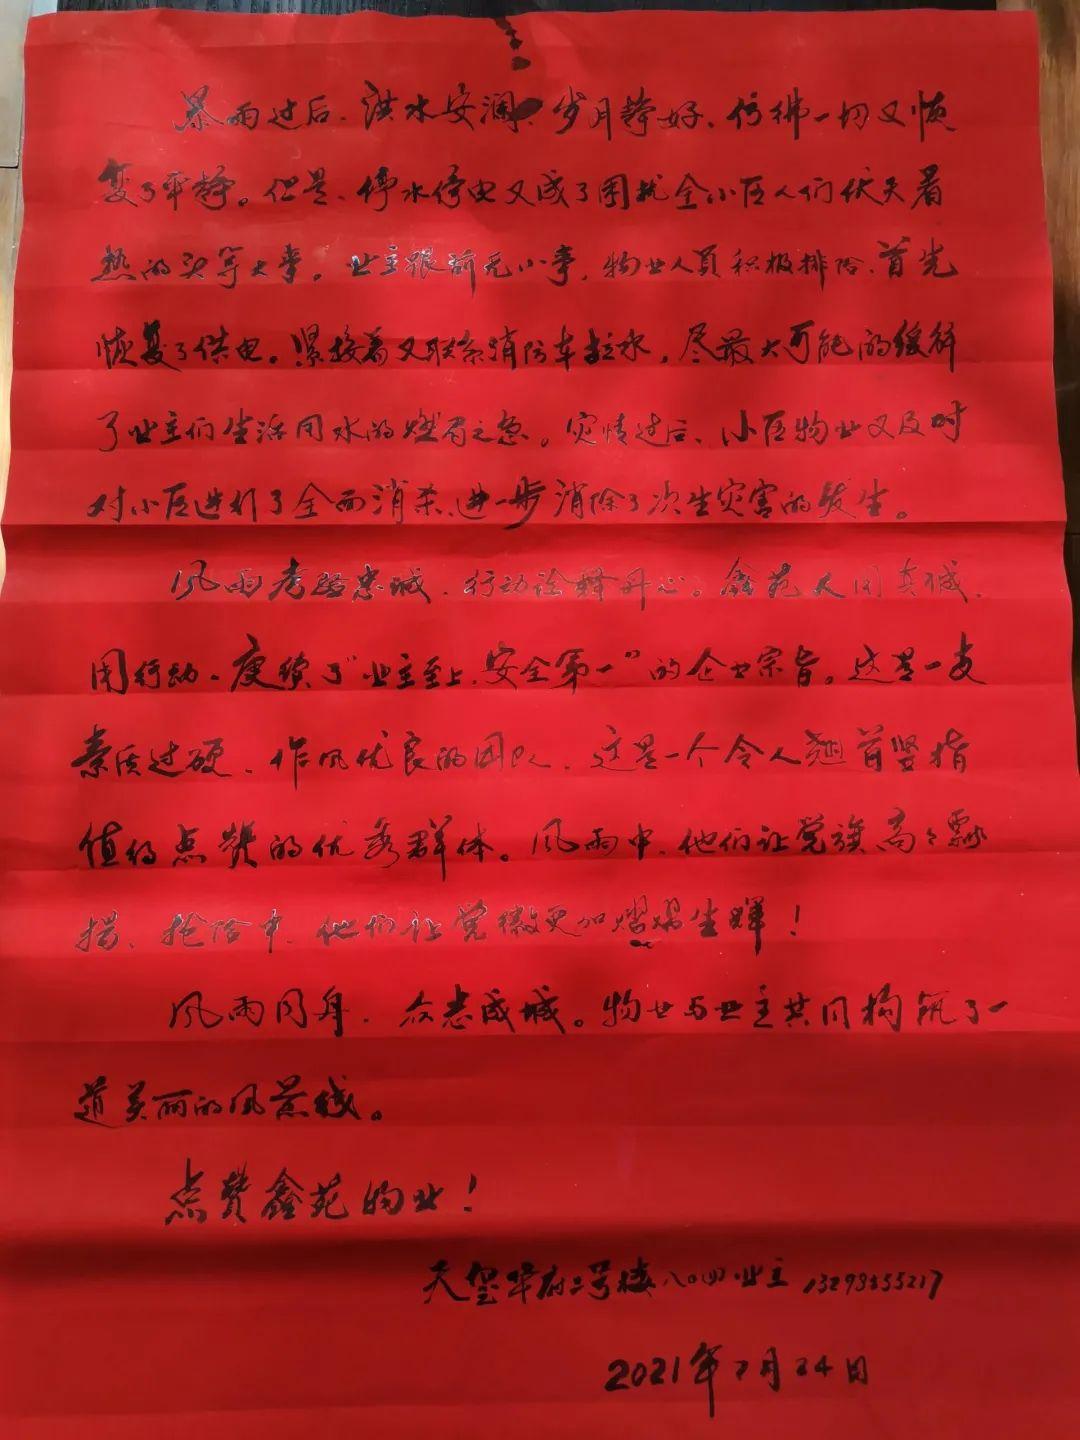 暴雨过后、洪水安澜、岁月静好、仿彿一切又恢
复了平静。但是、停水停电又成了困扰全小区人们伏天着
热的头等大事。业主跟前无小事，物业人员积极排险、首先
恢复了供电。紧接着又联系消防车拉水，尽最大可能的缓解
了业主们生活用水的燃眉之急。灾情过后、小区物业又及时
对小区进行了全面消杀、进一步消除了次生灾害的发生。
风雨考验忠诚，行动诠释丹心。鑫苑人用真诚、
用行动。赓续了“业主至上、安全第一”的企业宗旨。这是一支
素质过硬、作风优良的团队、这是一个令人翘首竖指
值得点赞的优秀群体。风雨中、他们让党旗高高飘
扬、抢险中、他们让党徽更加熠熠生辉！
风雨同舟、众志成城。物业与业主共同构筑了一
道美丽的风景线。
点赞鑫苑物业！
天玺华府二号楼八〇四业主 13293555217
2021年7月24日